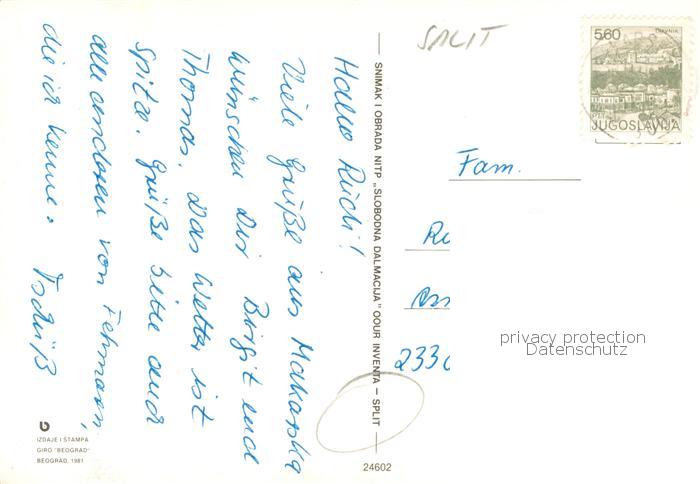 Hallo Rüdi!
Viele Grüße aus Makarska
wünschen Dir Birgit und
Thomas. Das Wetter ist
Spitze. Grüße bitte auch
alle anderen von Fehmarn,
die ich kenne. Tschüß
SPLIT
5,60
TRAVNIK
JUGOSLAVIJA
Fam.
233
privacy protection
Datenschutz
SNIMAK I OBRADA NITP „SLOBODNA DALMACIJA" OOUR INVENTA – SPLIT
24602
IZDAJE I ŠTAMPA
GIRO "BEOGRAD"
BEOGRAD, 1981